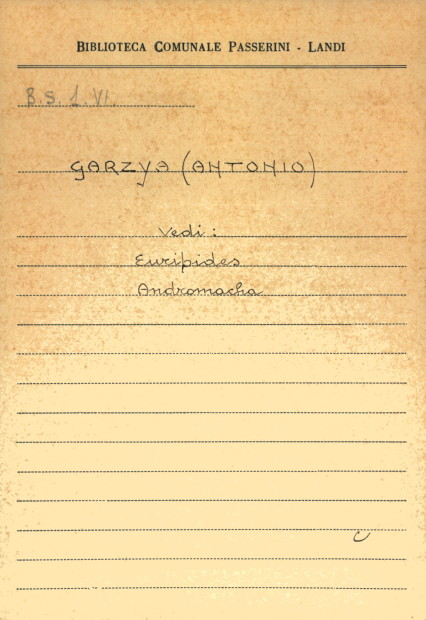 BIBLIOTECA COMUNALE PASSERINI - LANDI
B. S. 1. VI.
GARZYA (ANTONIO)
Vedi :
Euripides
Andromacha
C